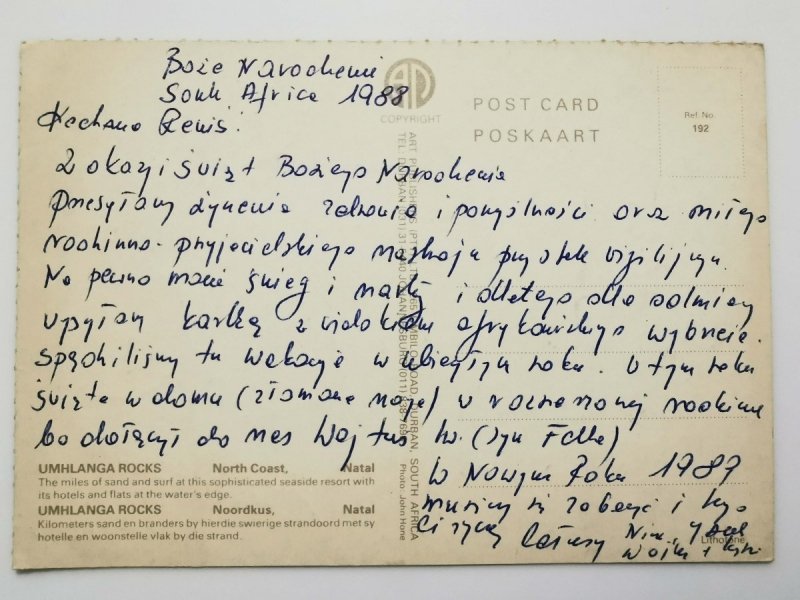 Boże Narodzenie
South Africa 1988
Kochana Reniś!
Z okazji świąt Bożego Narodzenia
przesyłamy życzenia zdrowia i pomyślności oraz miłego
rodzinno-przyjacielskiego nastroju przy stole wigilijnym.
Na pewno macie śnieg i narty i dlatego dla odmiany
wysyłam kartkę z widokiem afrykańskiego wybrzeża.
Spędziliśmy tu wakacje w ubiegłym roku. W tym roku
święta w domu (złamane nogi) w rodzinie
bo dołączył do nas Wojtuś (syn
W Nowym Roku 1989
musimy się zobaczyć i tego
Ci życzę Całusy
POST CARD
POSKAART
Ref. No.
192
COPYRIGHT
ART PUBLISHERS (PTY) DURBAN, SOUTH AFRICA
Photo: John Hone
UMHLANGA ROCKS North Coast, Natal
The miles of sand and surf at this sophisticated seaside resort with
its hotels and flats at the water's edge.
UMHLANGA ROCKS Noordkus, Natal
Kilometers sand en branders by hierdie swierige strandoord met sy
hotelle en woonstelle vlak by die strand.
Lithotone